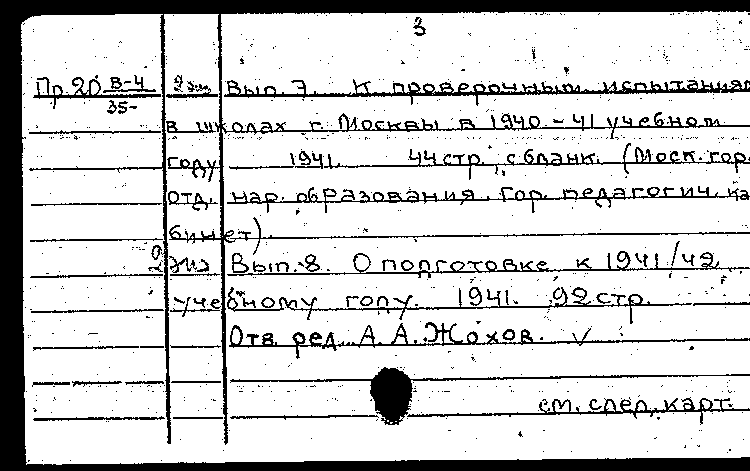 3
Пр.20 В-4/35- 2 экз Вып. 7. К проверочным испытаниям
в школах г. Москвы в 1940-41 учебном
году 1941. 44 стр., с бланк. (Моск. гор.
отд. нар. образования. Гор. педагогич. ка
бинет).
2 экз Вып. 8. О подготовке к 1941/42
учебному году. 1941. 92 стр.
Отв. ред. А. А. Жохов. √
см. след. карт.